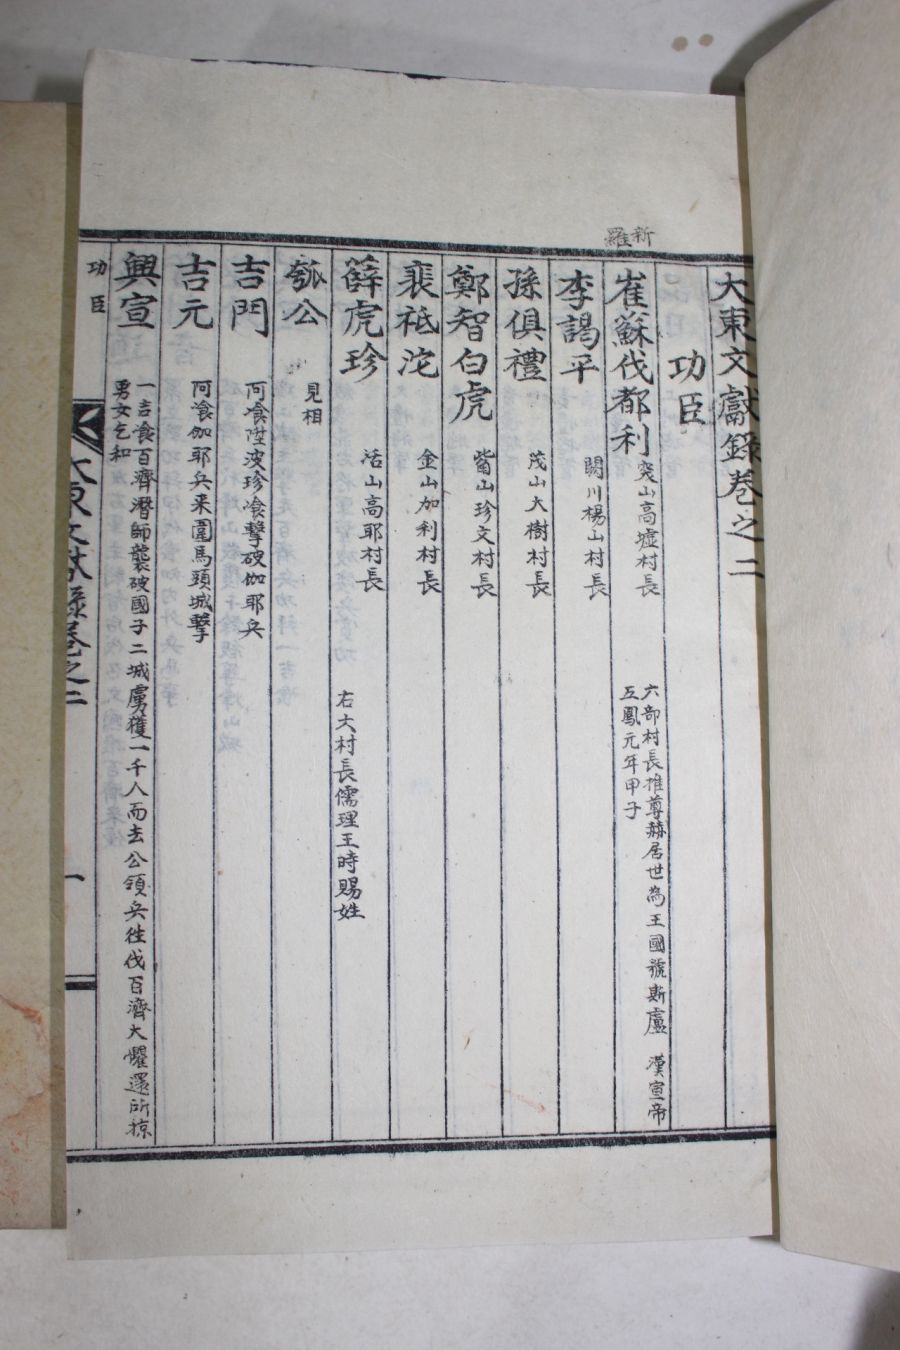 新羅
大東文獻錄卷之二
功臣
崔蘇伐都利 突山高墟村長 六部村長推尊赫居世為王國號斯盧 漢宣帝
五鳳元年甲子
李謁平 閼川楊山村長
孫俱禮 茂山大樹村長
鄭智白虎 觜山珍文村長
裵祗沱 金山加利村長
薛虎珍 活山高耶村長 右六村長儒理王時賜姓
瓠公 見相
吉門 阿飡陞波珍飡擊破伽耶兵
吉元 阿飡伽耶兵来圍馬頭城擊
興宣 一吉飡百濟潛師襲破國予二城虜獲一千人而去公領兵徃伐百濟大懼還所掠
男女乞和
功臣
大東文獻錄卷之二
一